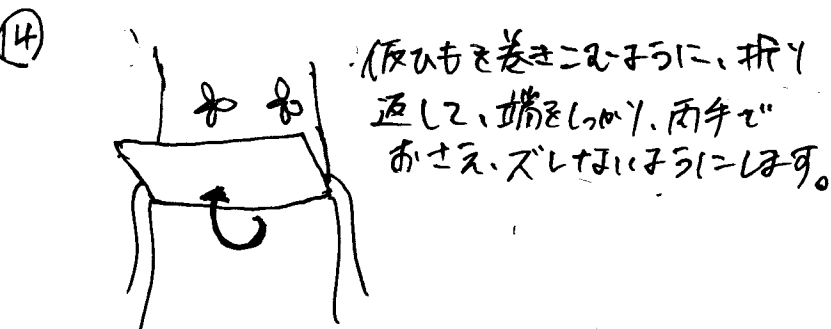 ⑭
仮ひもを巻きこむように、折り
返して、端をしっかり、両手で
おさえ、ズレないようにします。